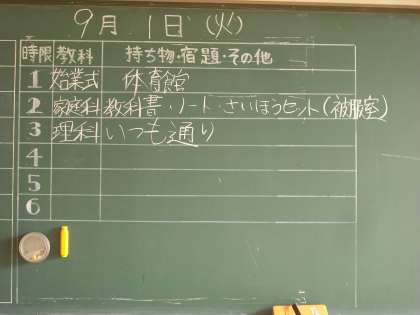 9月 1日 (火)
時限 教科 持ち物・宿題・その他
1 始業式 体育館
2 家庭科 教科書・ノート・さいほうセット(被服室)
3 理科 いつも通り
4
5
6